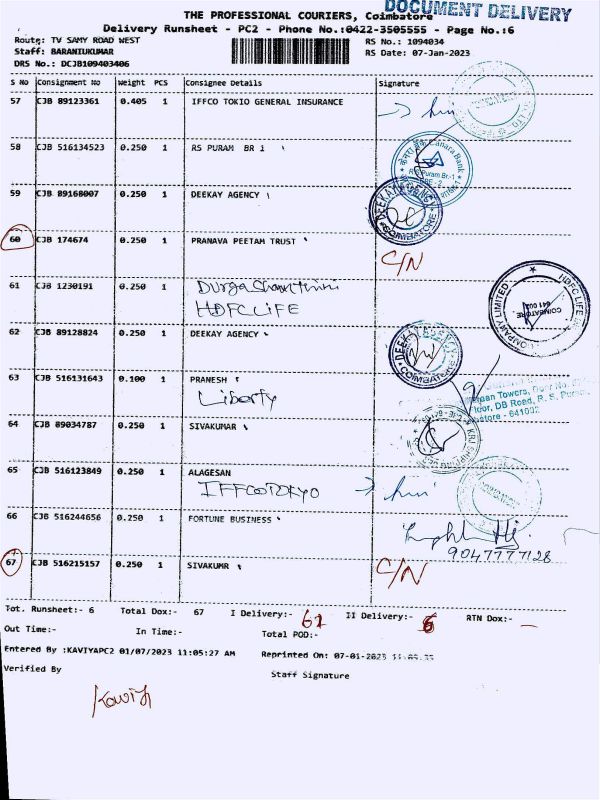 DOCUMENT DELIVERY
THE PROFESSIONAL COURIERS, Coimbatore
Delivery Runsheet - PC2 - Phone No.:0422-3505555 - Page No.:6
Route: TV SAMY ROAD WEST RS No.: 1094034
Staff: BARANIUKUMAR RS Date: 07-Jan-2023
DRS No.: DCJB109403406
S No Consignment No Weight PCS Consignee Details Signature
57 CJB 89123361 0.405 1 IFFCO TOKIO GENERAL INSURANCE
58 CJB 516134523 0.250 1 RS PURAM BR 1
Canara Bank
R S Puram Br.-1
59 CJB 89168007 0.250 1 DEEKAY AGENCY
DEEKAY AGENCY COIMBATORE
60 CJB 174674 0.250 1 PRANAVA PEETAM TRUST
C/N
61 CJB 1230191 0.250 1
HDFC LIFE
HDFC LIFE
COMPANY LIMITED
COIMBATORE
641 002
62 CJB 89128824 0.250 1 DEEKAY AGENCY
DEEKAY AGENCY COIMBATORE
63 CJB 516131643 0.100 1 PRANESH
Liberty
Towers,
Floor, DB Road, R. S. Puram
- 641002
64 CJB 89034787 0.250 1 SIVAKUMAR
65 CJB 516123849 0.250 1 ALAGESAN
IFFCO TOKYO
66 CJB 516244656 0.250 1 FORTUNE BUSINESS
9047777128
67 CJB 516215157 0.250 1 SIVAKUMR
C/N
Tot. Runsheet:- 6 Total Dox:- 67 I Delivery:- 61 II Delivery:- 6 RTN Dox:- -
Out Time:- In Time:- Total POD:-
Entered By :KAVIYAPC2 01/07/2023 11:05:27 AM Reprinted On: 07-01-2023
Verified By Staff Signature